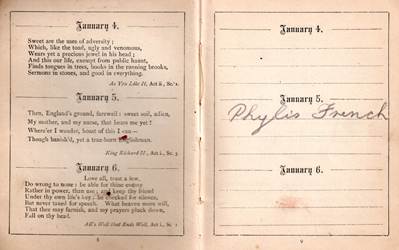 January 4.
Sweet are the uses of adversity;
Which, like the toad, ugly and venomous,
Wears yet a precious jewel in his head;
And this our life, exempt from public haunt,
Finds tongues in trees, books in the running brooks,
Sermons in stones, and good in everything.
As You Like It, Act ii., Sc. 1.
January 5.
Then, England's ground, farewell: sweet soil, adieu,
My mother, and my nurse, that bears me yet!
Where'er I wander, boast of this I can—
Though banish'd, yet a true-born Englishman.
King Richard II., Act i., Sc. 3
January 6.
Love all, trust a few,
Do wrong to none: be able for thine enemy
Rather in power, than use; and keep thy friend
Under thy own life's key; be checked for silence,
But never taxed for speech. What heaven more will,
That thee may furnish, and my prayers pluck down,
Fall on thy head.
All's Well that Ends Well, Act i., Sc. 1
January 4.
January 5.
Phylis French
January 6.